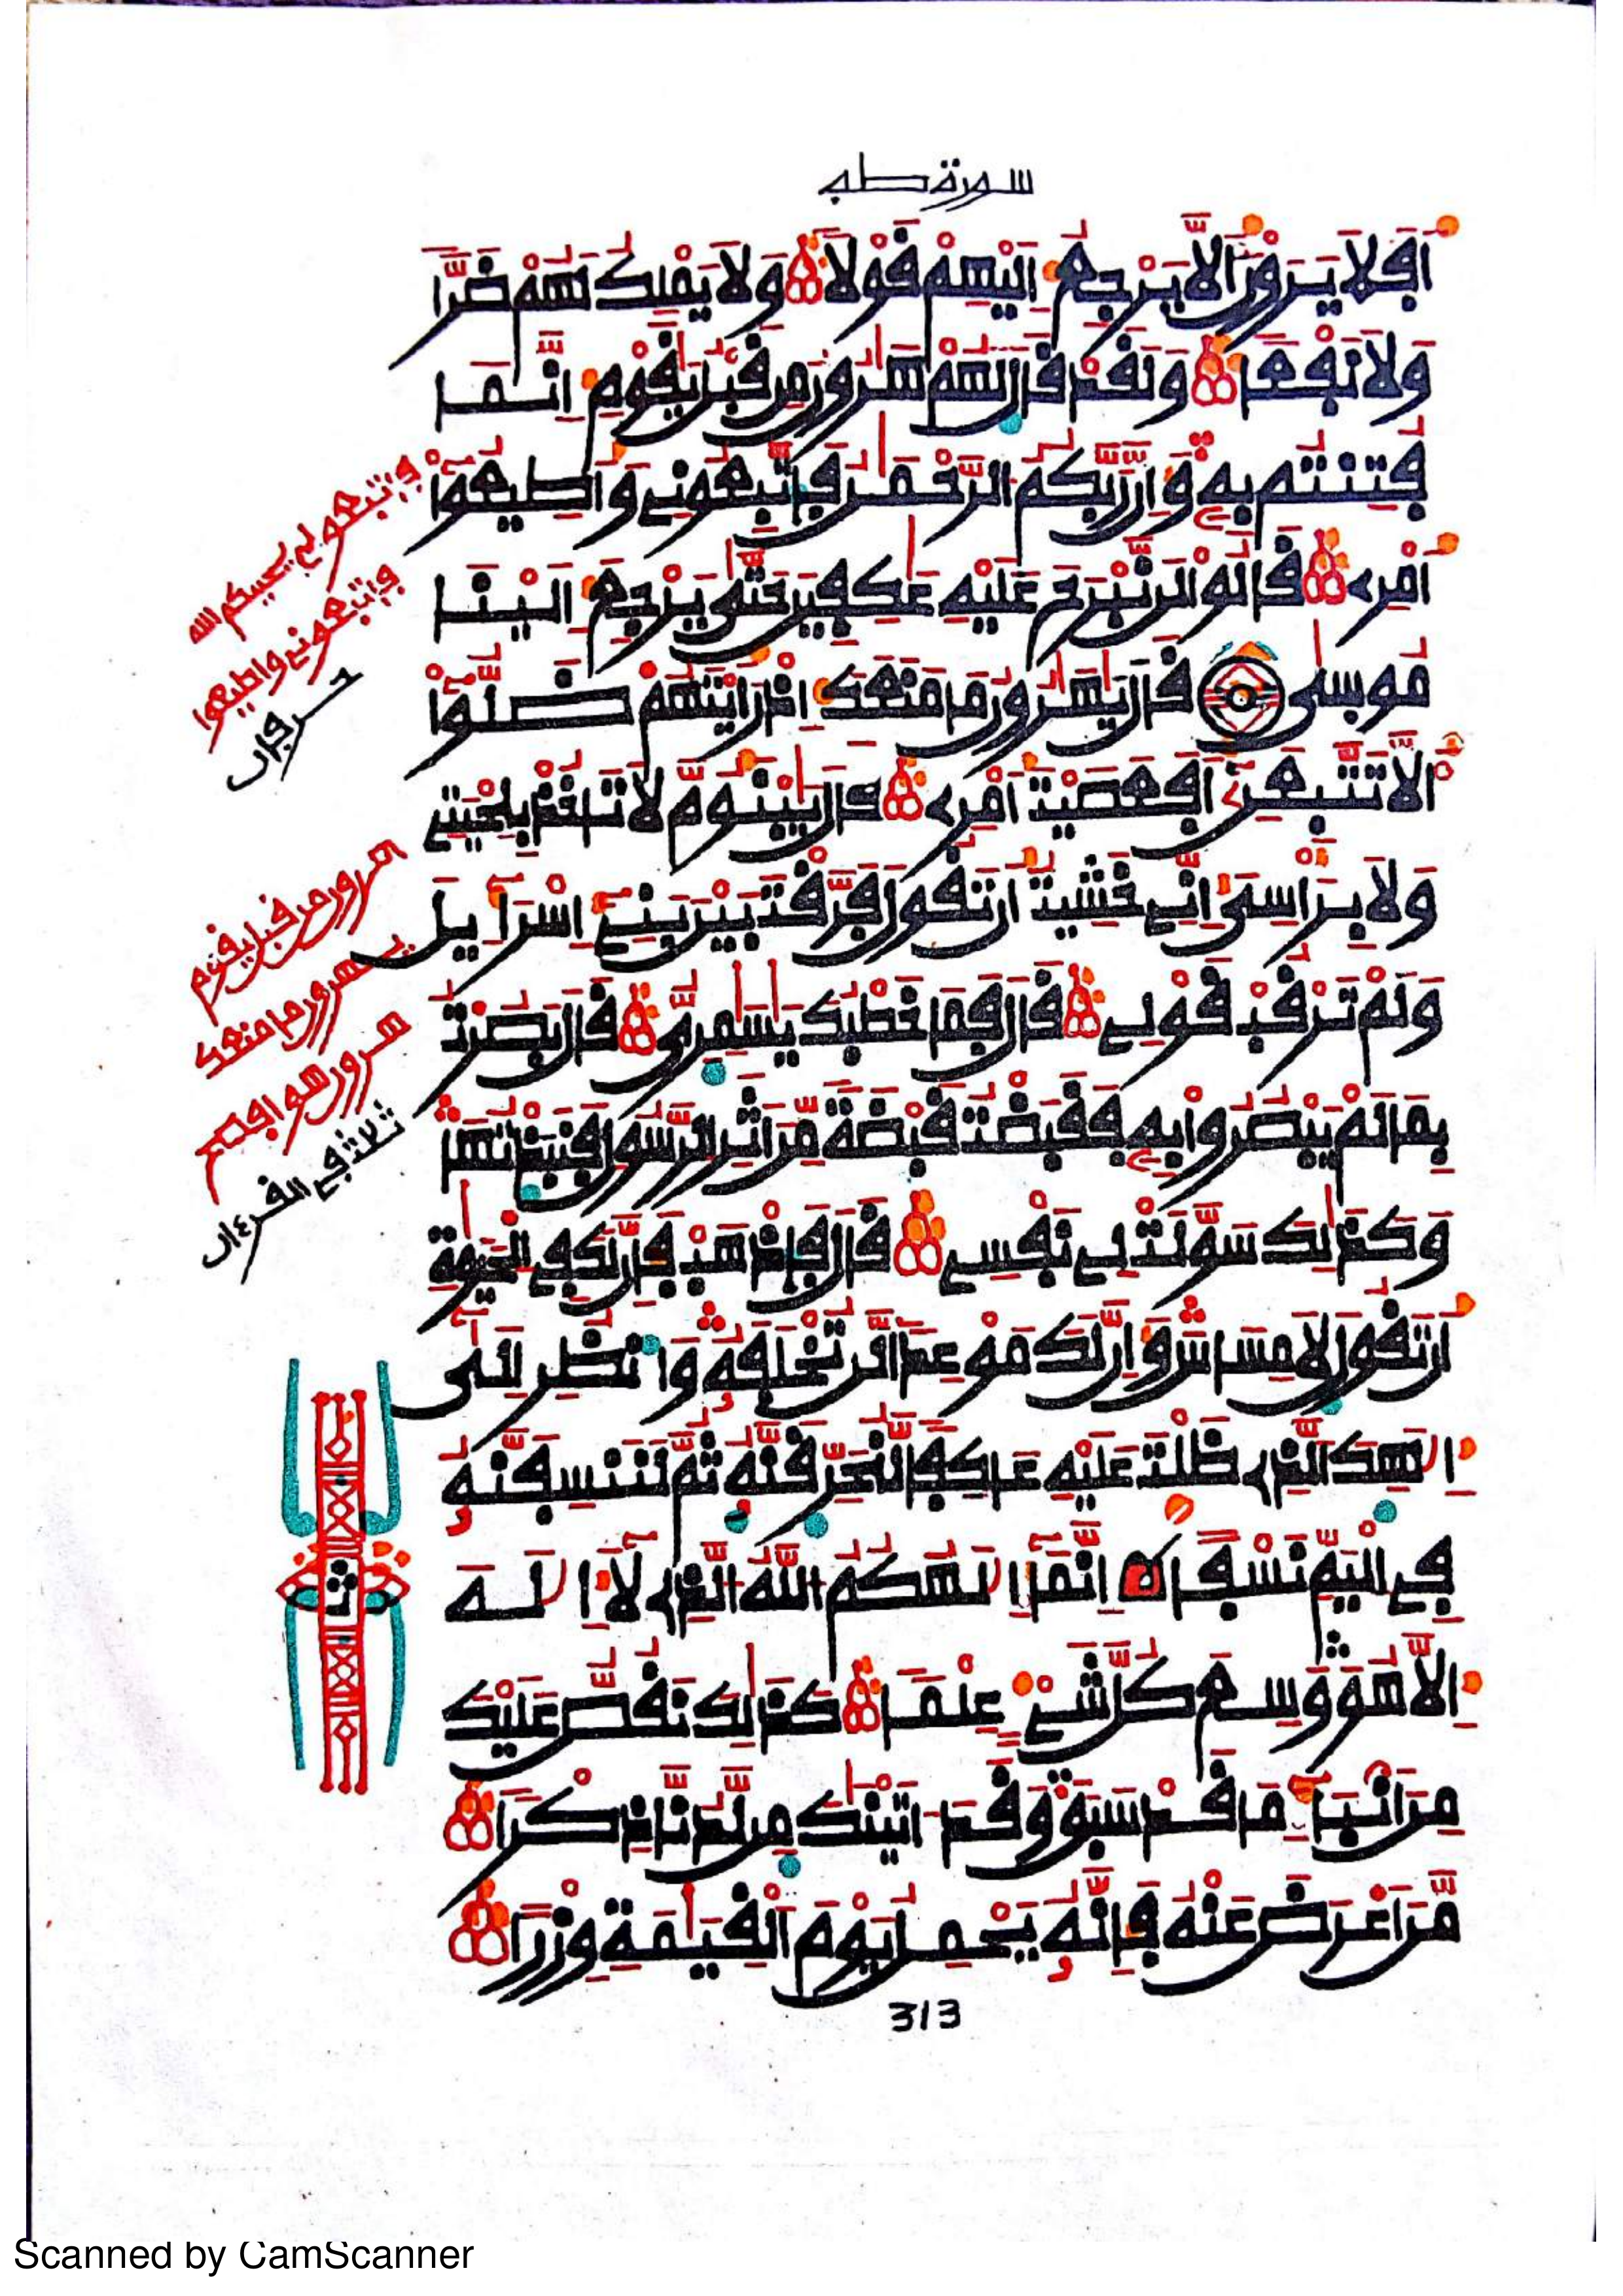 سورة طه
اَفَلَا يَرَوْنَ اَلَّا يَرْجِعُ إِلَيْهِمْ قَوْلًا وَلَا يَمْلِكُ لَهُمْ ضَرًّا
وَلَا نَفْعًا وَلَقَدْ قَالَ لَهُمْ هَٰرُونُ مِن قَبْلُ يَٰقَوْمِ إِنَّمَا
فُتِنتُم بِهِ وَإِنَّ رَبَّكُمُ الرَّحْمَٰنُ فَاتَّبِعُونِي وَأَطِيعُوا
أَمْرِي قَالُوا لَن نَّبْرَحَ عَلَيْهِ عَٰكِفِينَ حَتَّىٰ يَرْجِعَ إِلَيْنَا
مُوسَىٰ قَالَ يَٰهَٰرُونُ مَا مَنَعَكَ إِذْ رَأَيْتَهُمْ ضَلُّوا
أَلَّا تَتَّبِعَنِ أَفَعَصَيْتَ أَمْرِي قَالَ يَبْنَؤُمَّ لَا تَأْخُذْ بِلِحْيَتِي
وَلَا بِرَأْسِي إِنِّي خَشِيتُ أَن تَقُولَ فَرَّقْتَ بَيْنَ بَنِي إِسْرَاءِيلَ
وَلَمْ تَرْقُبْ قَوْلِي قَالَ فَمَا خَطْبُكَ يَٰسَٰمِرِيُّ قَالَ بَصُرْتُ
بِمَا لَمْ يَبْصُرُوا بِهِ فَقَبَضْتُ قَبْضَةً مِّنْ أَثَرِ الرَّسُولِ فَنَبَذْتُهَا
وَكَذَٰلِكَ سَوَّلَتْ لِي نَفْسِي قَالَ فَاذْهَبْ فَإِنَّ لَكَ فِي الْحَيَوٰةِ
أَن تَقُولَ لَا مِسَاسَ وَإِنَّ لَكَ مَوْعِدًا لَّن تُخْلَفَهُ وَانظُرْ إِلَىٰ
إِلَٰهِكَ الَّذِي ظَلْتَ عَلَيْهِ عَاكِفًا لَّنُحَرِّقَنَّهُ ثُمَّ لَنَنسِفَنَّهُ
فِي الْيَمِّ نَسْفًا إِنَّمَا إِلَٰهُكُمُ اللَّهُ الَّذِي لَا إِلَٰهَ
إِلَّا هُوَ وَسِعَ كُلَّ شَيْءٍ عِلْمًا كَذَٰلِكَ نَقُصُّ عَلَيْكَ
مِنْ أَنبَاءِ مَا قَدْ سَبَقَ وَقَدْ آتَيْنَٰكَ مِن لَّدُنَّا ذِكْرًا
مَّنْ أَعْرَضَ عَنْهُ فَإِنَّهُ يَحْمِلُ يَوْمَ الْقِيَٰمَةِ وِزْرًا
313
فاتبعوني يحببكم الله
فاتبعوني وأطيعوا
حرفان
هرون من قبل يقوم
يهرون ما منعك
هرون هو افصح
ثلاثة في القرءان
ث
Scanned by CamScanner